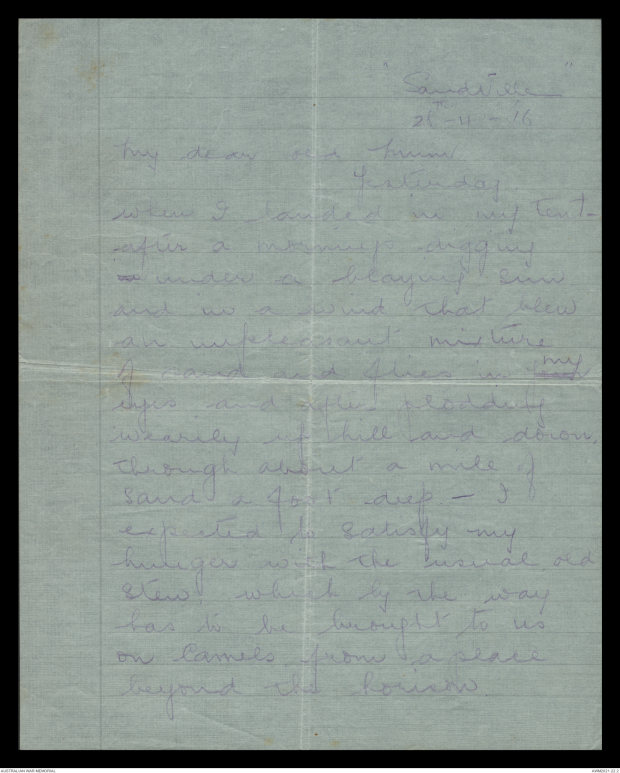 "Sandville"
26-11-16
My dear old Mum
Yesterday
when I landed in my tent
after a mornings digging
under a blazing sun
and in a wind that blew
an unpleasant mixture
of sand and flies in my
eyes and after plodding
wearily up hill and down,
through about a mile of
sand a foot deep - I
expected to satisfy my
hunger with the usual old
stew, which by the way
has to be brought to us
on Camels from a place
beyond the horison.
AUSTRALIAN WAR MEMORIAL